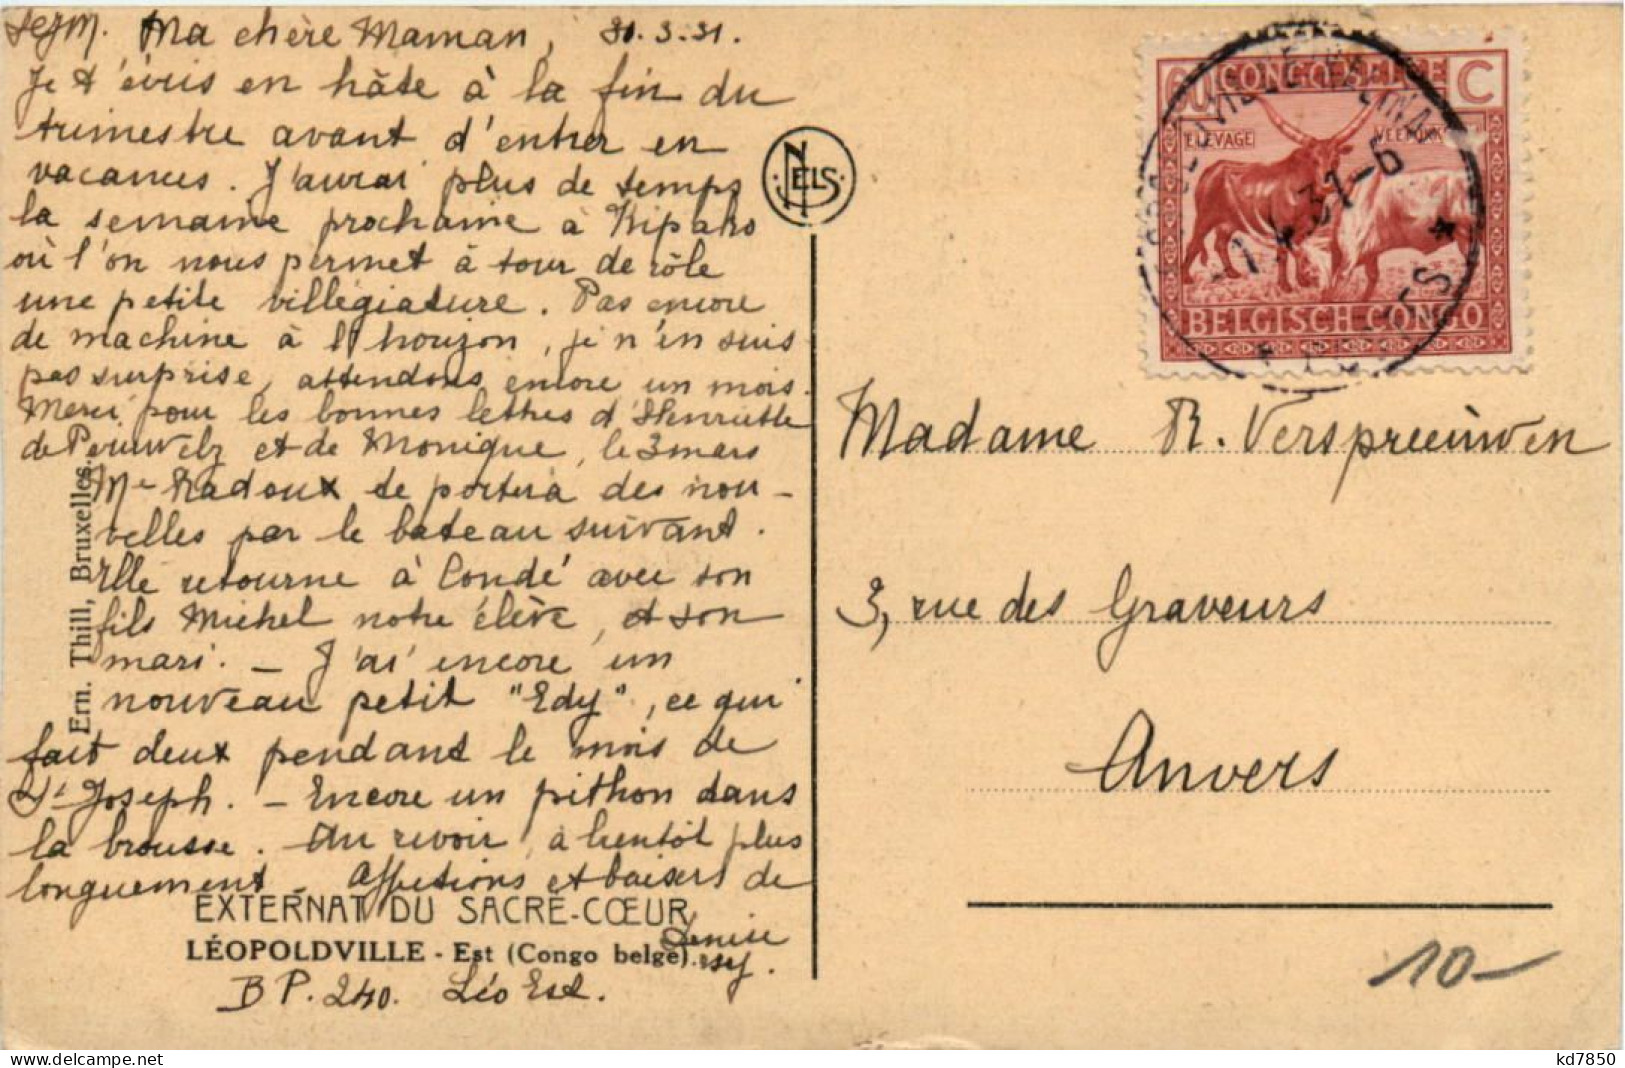 Ma chère Maman, 31.3.31.
Je t'écris en hâte à la fin du
trimestre avant d'entrer en
vacances. J'aurai plus de temps
la semaine prochaine à Kipako
où l'on nous permet à tour de rôle
une petite villégiature. Pas encore
de machine à l'horizon, je n'en suis
pas surprise, attendons encore un mois.
Merci pour les bonnes lettres d'Henriette
de Peruwelz et de Monique, le 3 mars
Me Hadoux te portera des nou-
velles par le bateau suivant.
Elle retourne à Condé avec son
fils Michel notre élève, et son
mari. - J'ai encore un
nouveau petit "Edy", ce qui
fait deux pendant le mois de
St Joseph. - Encore un pithon dans
la brousse. Au revoir, à bientôt plus
longuement - Affections et baisers de
Denise
rsg.
EXTERNAT DU SACRÉ-CŒUR
LÉOPOLDVILLE - Est (Congo belge).
B P. 240. Léo Est.
Ern. Thill, Bruxelles.
NELS
60 CONGO BELGE C
ELEVAGE
BELGISCH CONGO
31-6
Madame R. Verspreeuwen
3, rue des Graveurs
Anvers
10-
kd7850